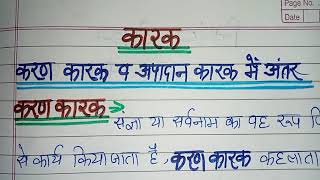 Page No.
Date
कारक
करण कारक व अपादान कारक में अंतर
करण कारक
संज्ञा या सर्वनाम का वह रूप
से कार्य किया जाता है, करण कारक कहलाता